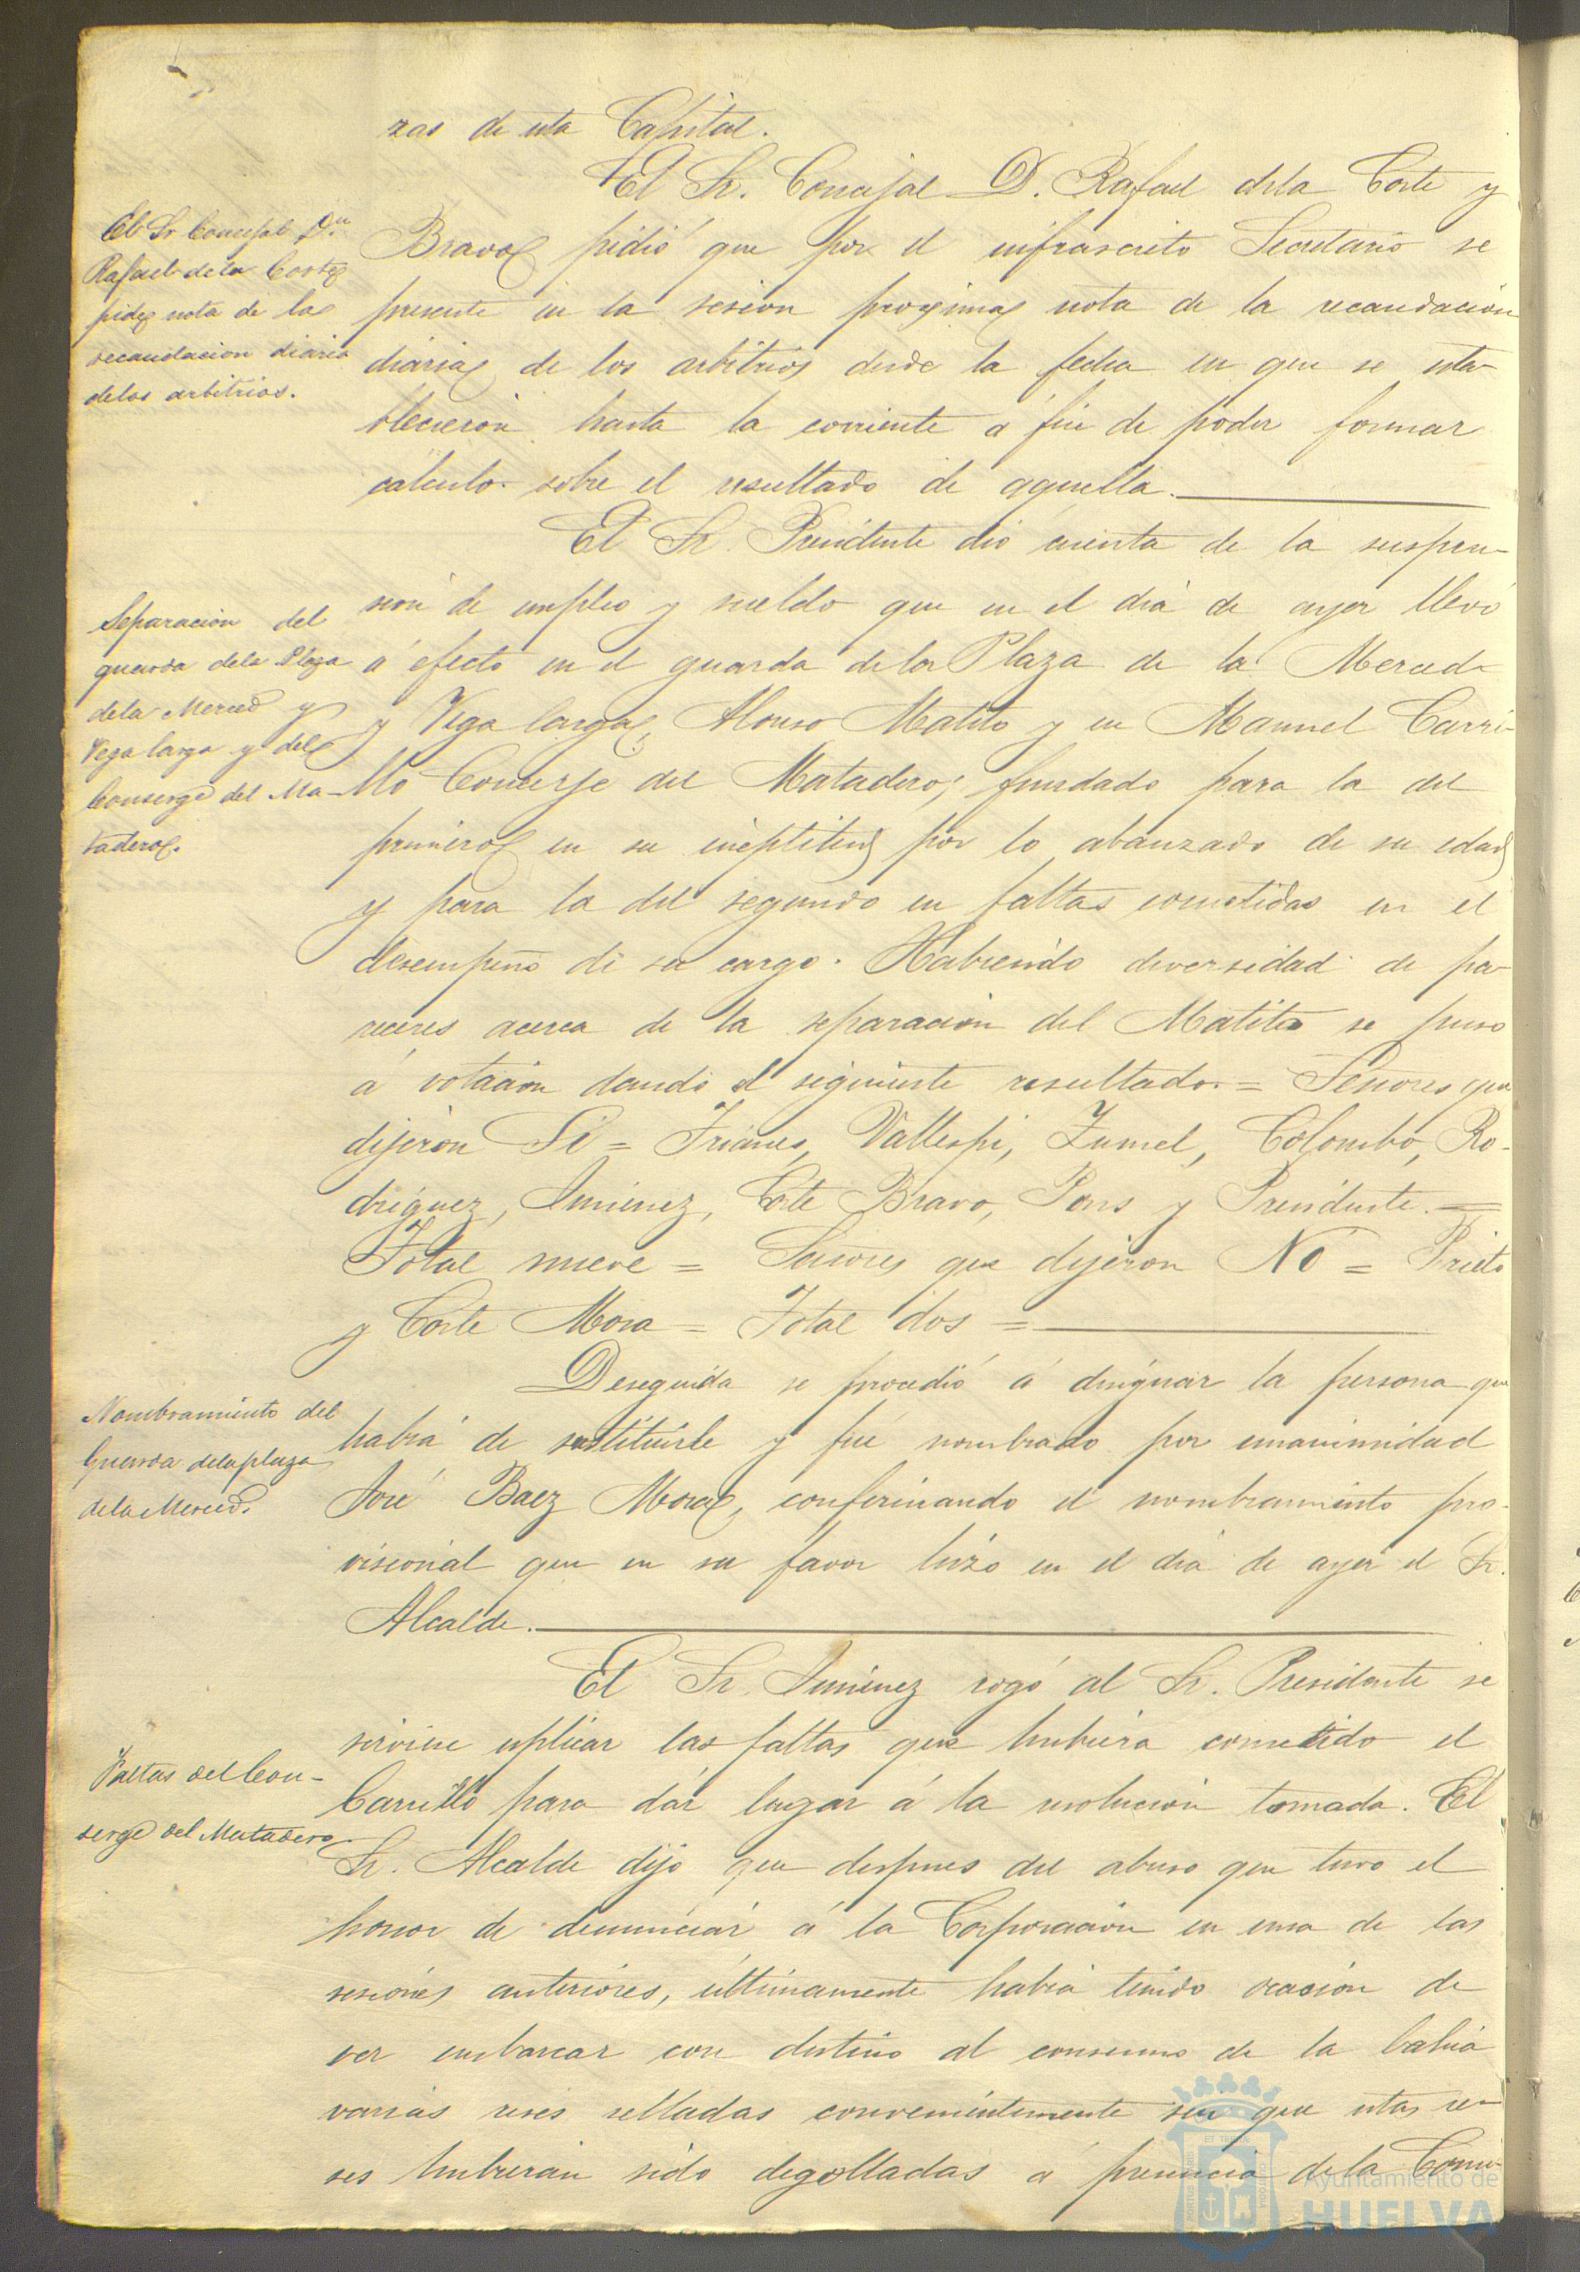 zas de esta Capital.
El Sr. Concejal D. Rafael dela Corte y
El Sr Concejal Dn
Rafael de la Corte
pide nota de la
recaudacion diaria
delos arbitrios.
Bravo pidió que por el infrascrito Secretario se
presente en la sesion proxima nota de la recaudación
diaria de los arbitrios desde la fecha en que se esta-
blecieron hasta la corriente á fin de poder formar
calculo sobre el resultado de aquella.
El Sr. Presidente dió cuenta de la suspen-
Separacion del
guarda dela Plaza
dela Merced y
Vega larga y del
Conserge del Ma-
tadero.
sion de empleo y sueldo que en el dia de ayer llevó
á efecto en el guarda de la Plaza de la Merced
y Vega larga, Alonso Matito y en Manuel Carri-
llo Conserje del Matadero; fundado para la del
primero en su ineptitud por lo abanzado de su edad
y para la del segundo en faltas cometidas en el
desempeño de su cargo. Habiendo diversidad de pa-
receres acerca de la separación del Matito se puso
á votación dando el siguiente resultado = Señores que
dijeron Si = Trianes, Vallespi, Zumel, Colombo, Ro-
driguez, Jimenez, Corte Bravo, Pons y Presidente. =
Total nueve = Señores que dijeron No = Prieto
y Corte Mora = Total dos =
Deseguida se procedió á designar la persona que
Nombramiento del
Guarda dela plaza
dela Merced.
habia de sustituirle y fue nombrado por unanimidad
José Baez Mora, confirmando el nombramiento pro-
visional que en su favor hizo en el dia de ayer el Sr.
Alcalde.
El Sr. Jimenez rogó al Sr. Presidente se
Faltas del Con-
serge del Matadero
sirviese esplicar las faltas que hubiera cometido el
Carrillo para dar lugar á la resolucion tomada. El
Sr. Alcalde dijo que despues del abuso que tuvo el
honor de denunciar á la Corporación en una de las
sesiones anteriores, ultimamente habia tenido ocasión de
ver embarcar con destino al consumo de la bahia
varias reses selladas convenientemente sin que estas re-
ses hubieran sido degolladas á presencia de la Comi-
Ayuntamiento de
HUELVA